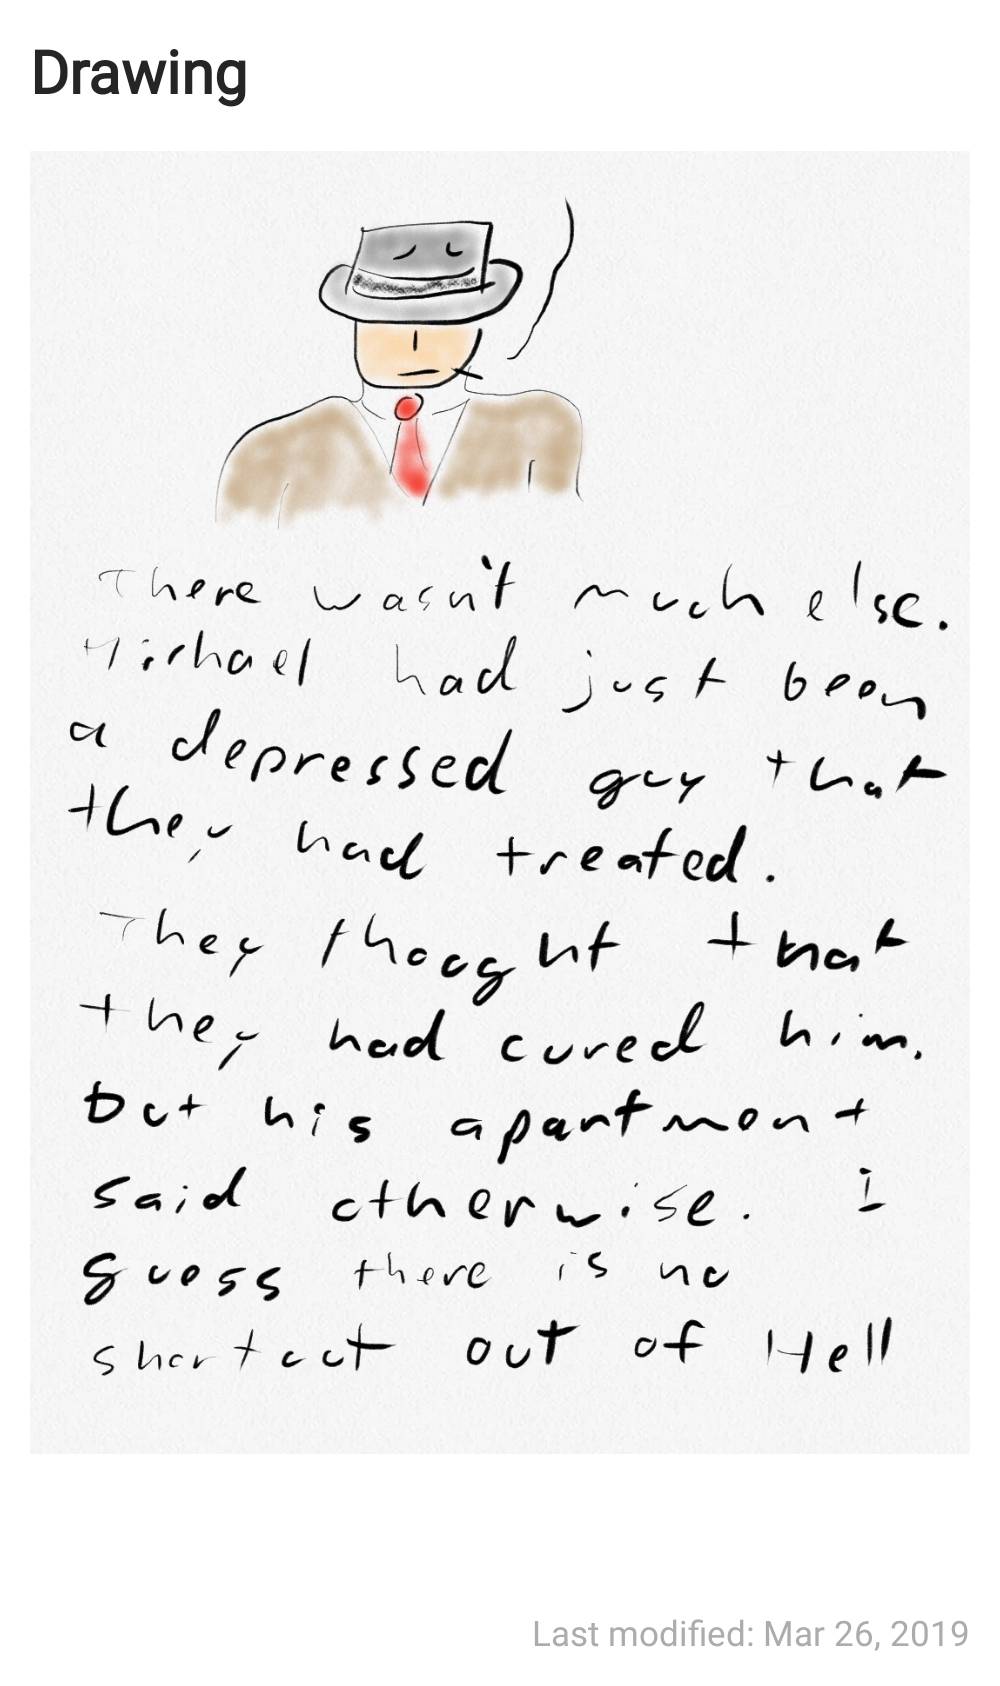 Drawing
There wasn't much else.
Michael had just been
a depressed guy that
they had treated.
They thought that
they had cured him.
but his apartment
said otherwise. I
guess there is no
shortcut out of Hell
Last modified: Mar 26, 2019